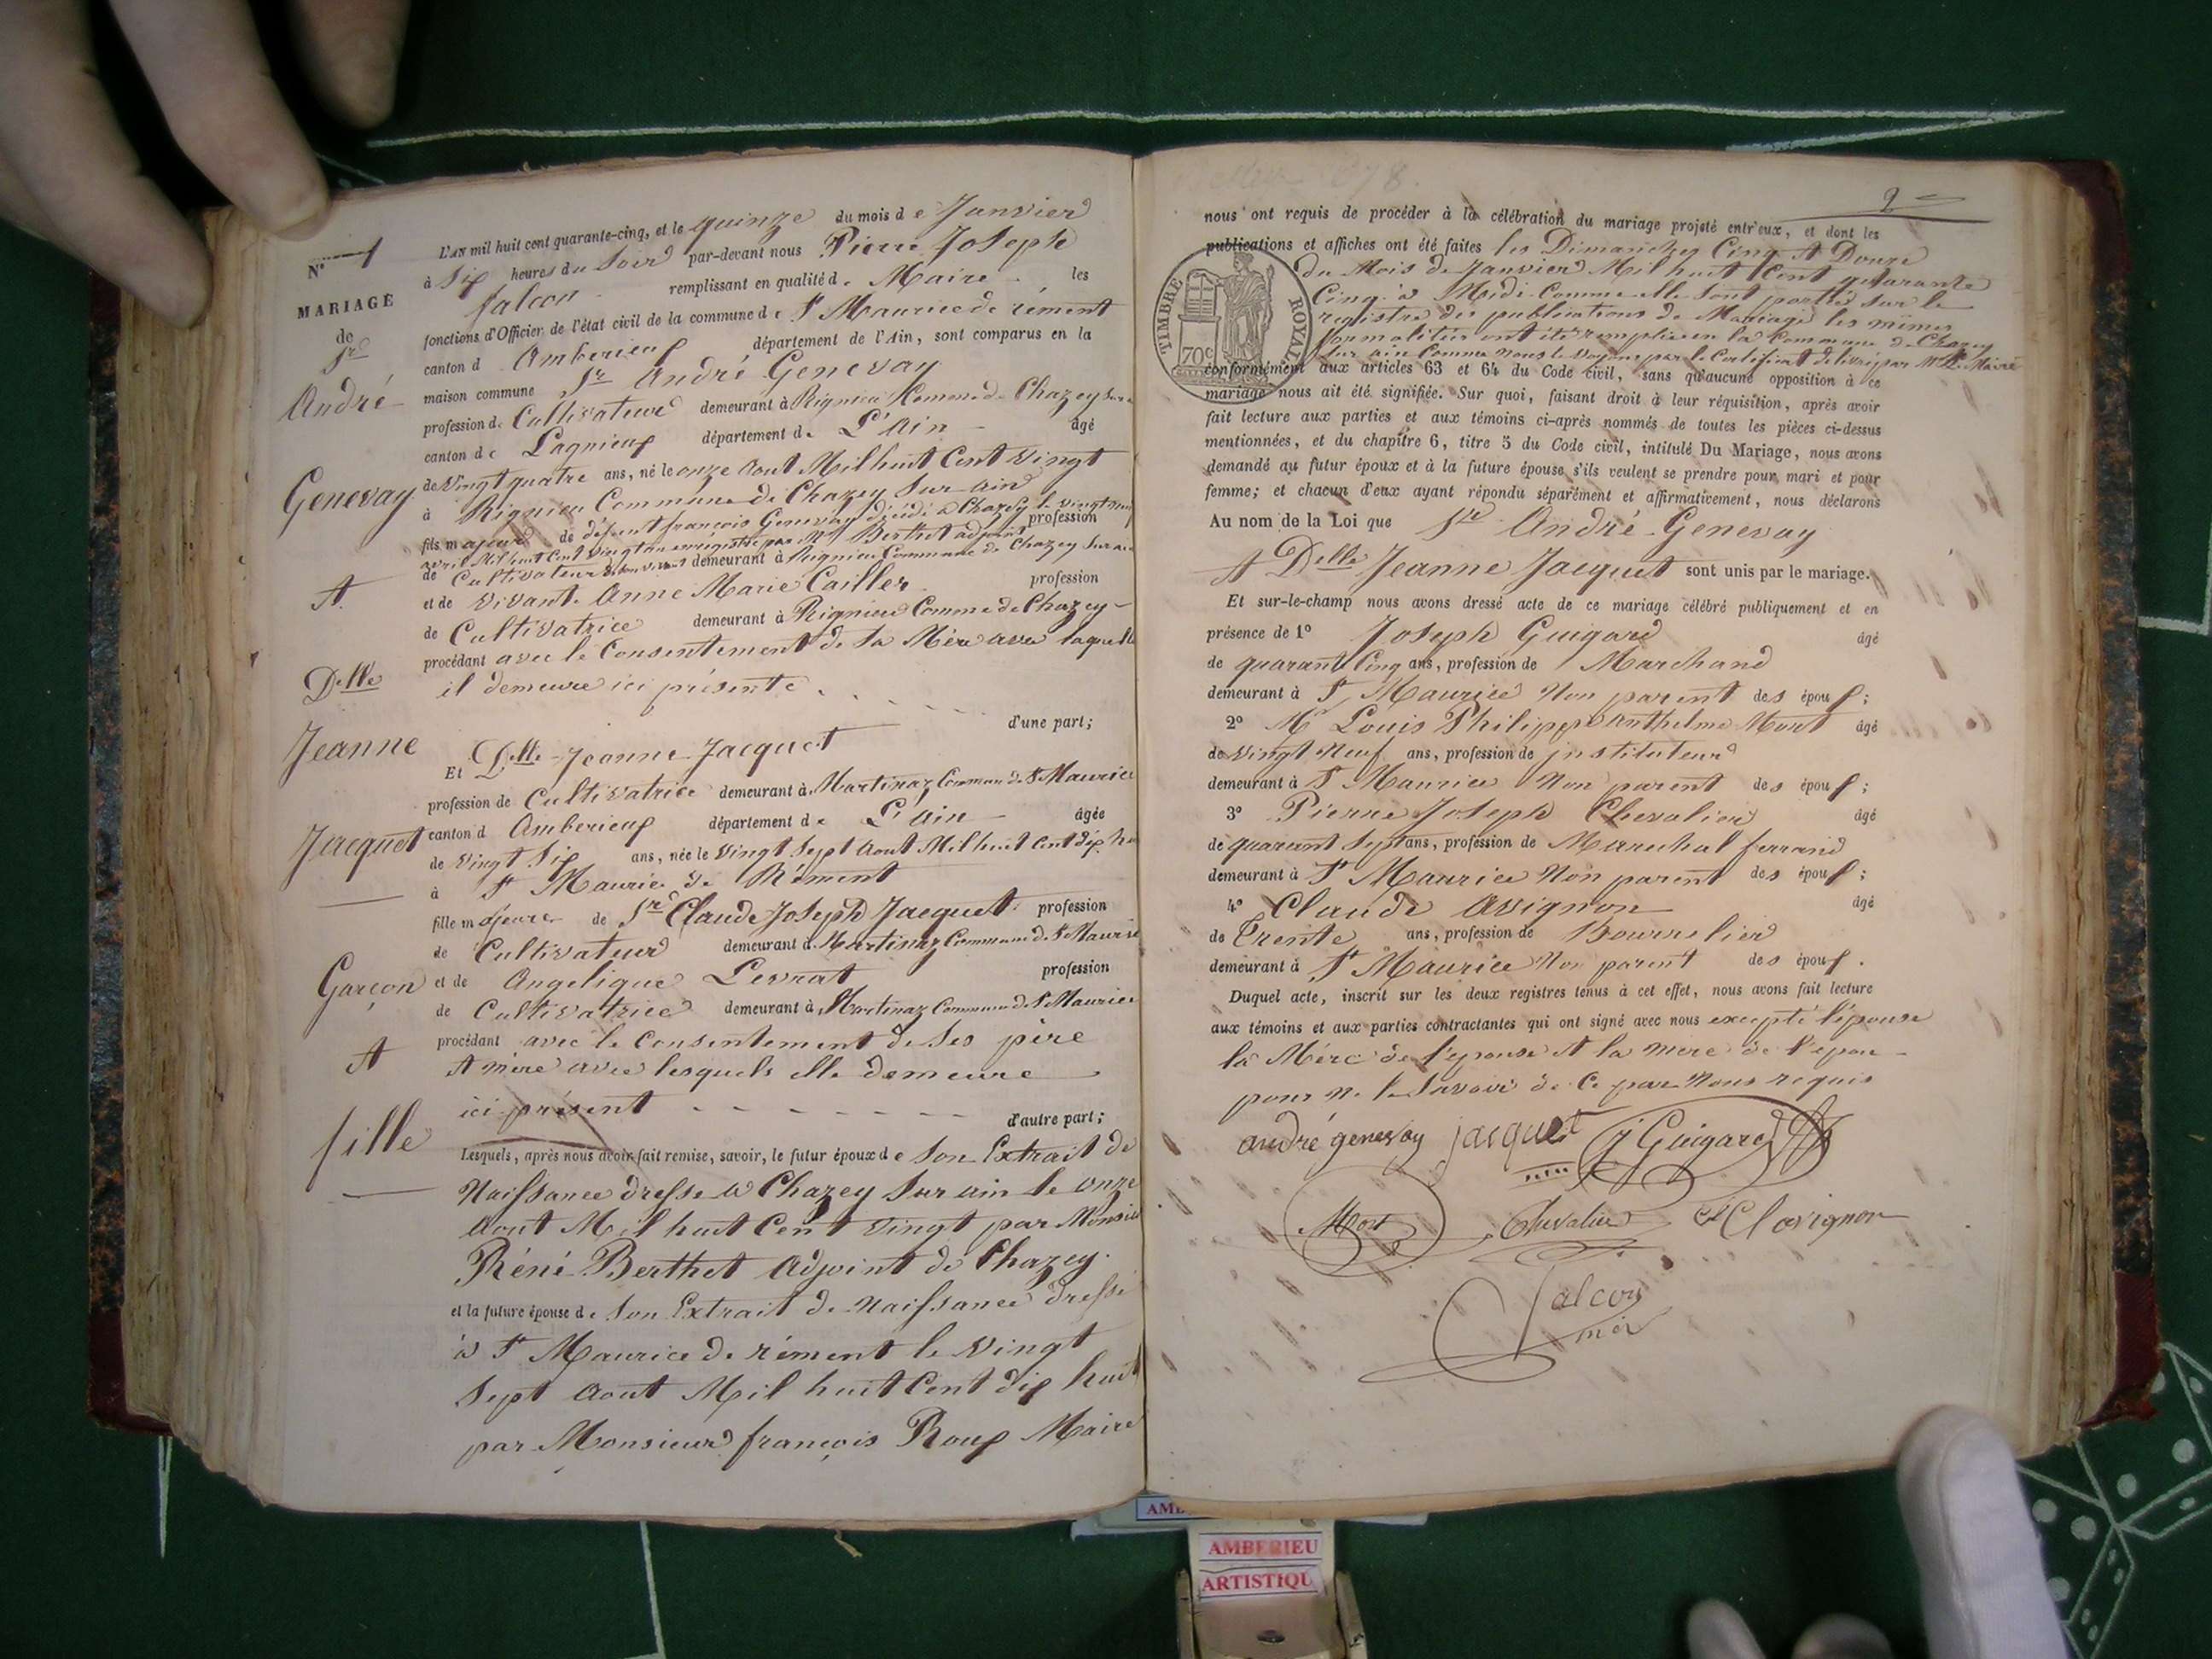 N° 1
MARIAGE
de
Sr
André
Genevay
Et
Delle
Jeanne
Jacquet
Garçon
Et
fille
L'AN mil huit cent quarante-cinq, et le quinze du mois de Janvier
à Six heures du Soir par-devant nous Pierre Joseph
falcon remplissant en qualité de Maire les
fonctions d'Officier de l'état civil de la commune de St Maurice de rément
canton d Amberieux département de l'Ain, sont comparus en la
maison commune Sr André Genevay
profession de Cultivateur demeurant à Rignieu Commune de Chazey Sur
canton de Lagnieux département de L'Ain âgé
de Vingt quatre ans, né le onze Aout Mil huit Cent Vingt
à Rignieu Commune de Chazey Sur Ain
fils majeur de défunt françois Genevay décédé à Chazey le vingt profession
avril Mil huit Cent Vingt enregistré par Mr Berthet adjoint
de Cultivateur de son vivant demeurant à Rignieu Commune de Chazey Sur ain
et de Vivante Anne Marie Cailler profession
de Cultivatrice demeurant à Rignieu Comme de Chazey
procédant avec le Consentement de Sa Mère avec laquelle
il demeure ici présente
d'une part;
Et Delle Jeanne Jacquet
profession de Cultivatrice demeurant à Martinaz Commune de St Maurice
canton d Amberieux département de L'Ain âgée
de Vingt Six ans, née le Vingt Sept Aout Mil huit Cent dix hu
à St Maurice de Rément
fille majeure de Sr Claude Joseph Jacquet profession
de Cultivateur demeurant à Martinaz Commune de St Maurice
et de Angelique Levrat profession
de Cultivatrice demeurant à Martinaz Commune de St Maurice
procédant avec le Consentement de Ses père
Et mère avec lesquels elle demeure
ici présent
d'autre part;
Lesquels, après nous avoir fait remise, savoir, le futur époux de Son Extrait de
Naissance dressé à Chazey Sur ain le onze
Aout Mil huit Cent Vingt par Monsieu
Réné Berthet Adjoint de Chazey.
et la future épouse de Son Extrait de Naissance dressé
à St Maurice de rément le Vingt
Sept Aout Mil huit Cent dix huit
par Monsieur françois Roux Maire
2
nous ont requis de procéder à la célébration du mariage projeté entr'eux, et dont les
publications et affiches ont été faites les Dimanches Cinq Et Douze
du Mois de Janvier Mil huit Cent quarante
Cinq à Midi Comme elle Sont portés Sur le
registre des publications de Mariage les mêmes
formalités ont été remplies en la Commune de Chazey
Sur ain Comme nous le voyons par le Certificat délivré par Mr le Maire
TIMBRE ROYAL
70c
conformément aux articles 63 et 64 du Code civil, sans qu'aucune opposition à ce
mariage nous ait été signifiée. Sur quoi, faisant droit à leur réquisition, après avoir
fait lecture aux parties et aux témoins ci-après nommés de toutes les pièces ci-dessus
mentionnées, et du chapitre 6, titre 5 du Code civil, intitulé Du Mariage, nous avons
demandé au futur époux et à la future épouse s'ils veulent se prendre pour mari et pour
femme; et chacun d'eux ayant répondu séparément et affirmativement, nous déclarons
Au nom de la Loi que Sr André Genevay
Et Delle Jeanne Jacquet sont unis par le mariage.
Et sur-le-champ nous avons dressé acte de ce mariage célébré publiquement et en
présence de 1° Joseph Guigard âgé
de quarant Cinq ans, profession de Marchand
demeurant à St Maurice Non parent des époux;
2° Mr Louis Philippe Anthelme Mort âgé
de Vingt Neuf ans, profession de instituteur
demeurant à St Maurice Non parent des époux;
3° Pierre Joseph Chevalier âgé
de quarant Sept ans, profession de Marechal ferrand
demeurant à St Maurice Non parent des époux;
4° Claude Avignon âgé
de Trente ans, profession de Bourrelier
demeurant à St Maurice Non parent des époux.
Duquel acte, inscrit sur les deux registres tenus à cet effet, nous avons fait lecture
aux témoins et aux parties contractantes qui ont signé avec nous excepté l'épouse
la Mère de l'epouse Et la mere de l'epou
pour ne le Savoir de Ce par Nous requis
andré genevay jacquet J Guigard
Mort Chevalier Clavignon
falcon
AMBERIEU
ARTISTIQU